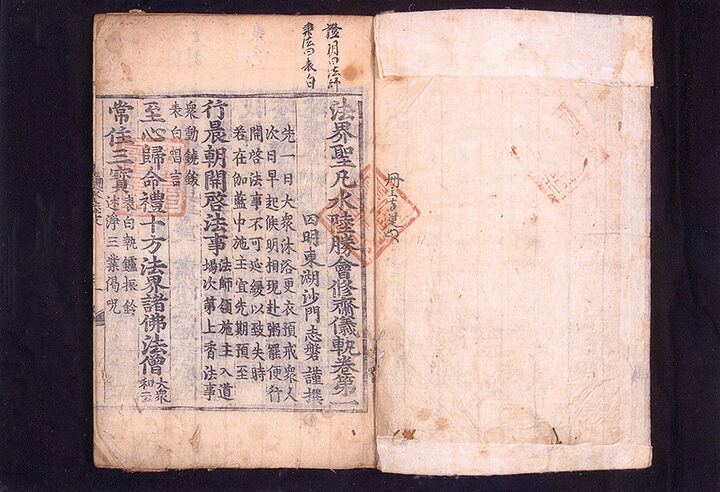 證明曰法師
秉法曰表白
法界聖凡水陸勝會修齋儀軌卷第一
四明東湖沙門志磐謹撰
先一日大衆沐浴更衣預戒衆人
次日早起候明相現赴粥罷便行
開啓法事不可延緩以致失時
若在伽藍中施主宜先期預至
行晨朝開啓法事 法師領施主入道
場次第上香法事
衆動鐃鈸
表白唱言
至心歸命禮十方法界諸佛法僧 大衆
和云
常住三寶 表白執鑪振鈴
速淨三業偈呪